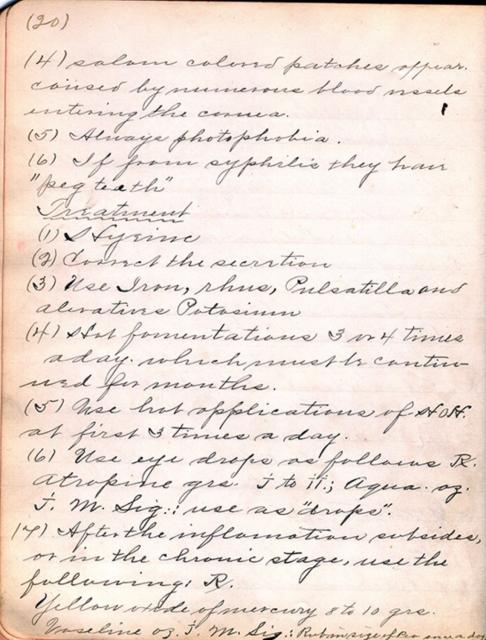 (20)
(4) salom colord patches appear.
caused by numerous blood vssels
entering the cornea.
(5) Always photophobia.
(6) If from syphilis they have
"peg teeth"
Treatment
(1) Hygeine
(2) Correct the secretion
(3) Use Iron, rhus, Pulsatilla and
alerative Potasium
(4) Hot fomentations 3 or 4 times
a day. which must be contin-
ued for months.
(5) Use hot applications of HOH.
at first 3 times a day.
(6) Use eye drops as follows R.
Atropine grs. i to ii.; Aqua. oz.
i. M. Sig.: use as "drops".
(7) After the inflamation subsides,
or in the chronic stage, use the
following: R.
Yellow oxide of mercury 8 to 10 grs.
Vaseline oz. i. M. Sig.: Rub in size of